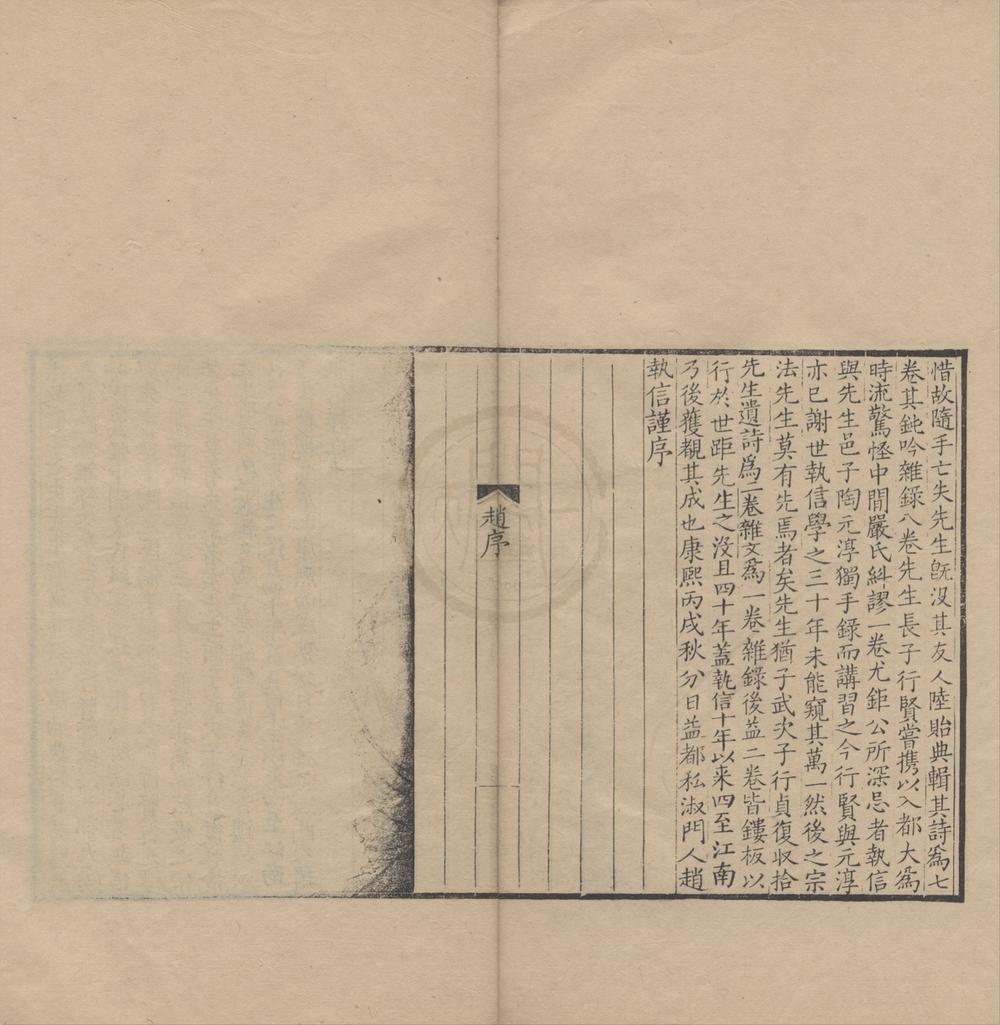 惜故隨手亡失先生旣沒其友人陸貽典輯其詩爲七
卷其鈍吟雜錄八卷先生長子行賢嘗携以入都大爲
時流驚怪中間嚴氏糾謬一卷尤鉅公所深忌者執信
與先生邑子陶元淳獨手錄而講習之今行賢與元淳
亦已謝世執信學之三十年未能窺其萬一然後之宗
法先生莫有先焉者矣先生猶子武次子行貞復収拾
先生遺詩爲二卷雜文爲一卷雜錄後益二卷皆鏤板以
行於世距先生之沒且四十年蓋執信十年以来四至江南
乃後獲覩其成也康熙丙戌秋分日益都私淑門人趙
執信謹序
趙序